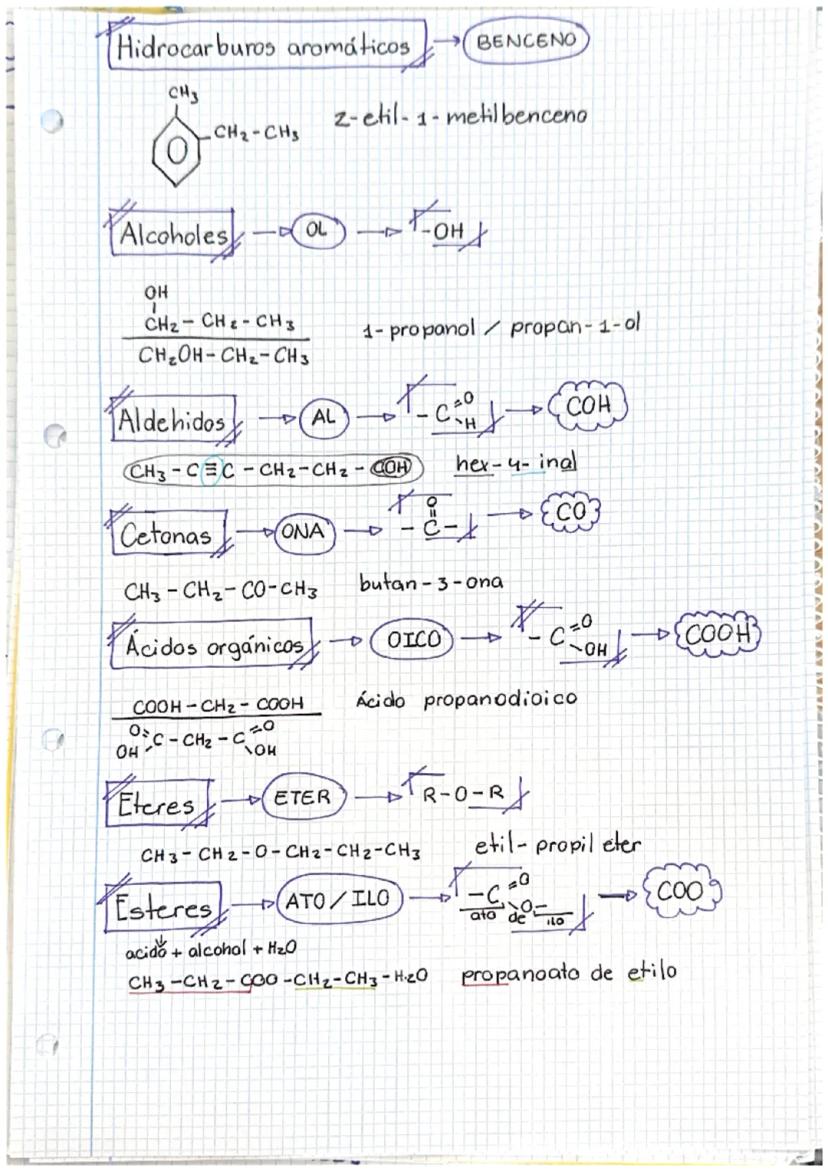 Hidrocarburos aromáticos → BENCENO
CH3
CH2-CH3 2-etil-1-metilbenceno
Alcoholes → OL → -OH
OH
CH2-CH2-CH3 1-propanol / propan-1-ol
CH2OH-CH2-CH3
Aldehidos → AL → -C=O -H → COH
CH3-C≡C-CH2-CH2-COH hex-4-inal
Cetonas → ONA → O=-C- → CO
CH3-CH2-CO-CH3 butan-3-ona
Ácidos orgánicos → OICO → -C=O -OH → COOH
COOH-CH2-COOH Ácido propanodioico
O=C-CH2-C=O
OH OH
Eteres → ETER → R-O-R
CH3-CH2-O-CH2-CH2-CH3 etil-propil eter
Esteres → ATO/ILO → -C=O -O- → COO
ato de ilo
acido + alcohol + H2O
CH3-CH2-COO-CH2-CH3-H2O propanoato de etilo